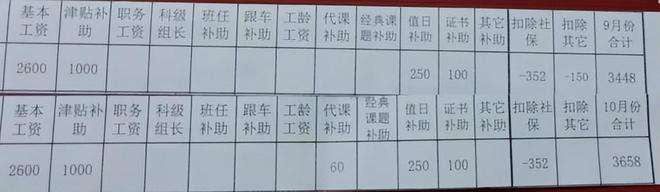 基本工资 津贴补助 职务工资 科级组长 班任补助 跟车补助 工龄工资 代课补助 经典课题补助 值日补助 证书补助 其它补助 扣除社保 扣除其它 9月份合计
2600 1000 250 100 -352 -150 3448
基本工资 津贴补助 职务工资 科级组长 班任补助 跟车补助 工龄工资 代课补助 经典课题补助 值日补助 证书补助 其它补助 扣除社保 扣除其它 10月份合计
2600 1000 60 250 100 -352 3658